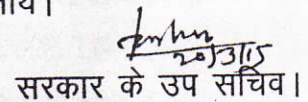 20/3/15
सरकार के उप सचिव।